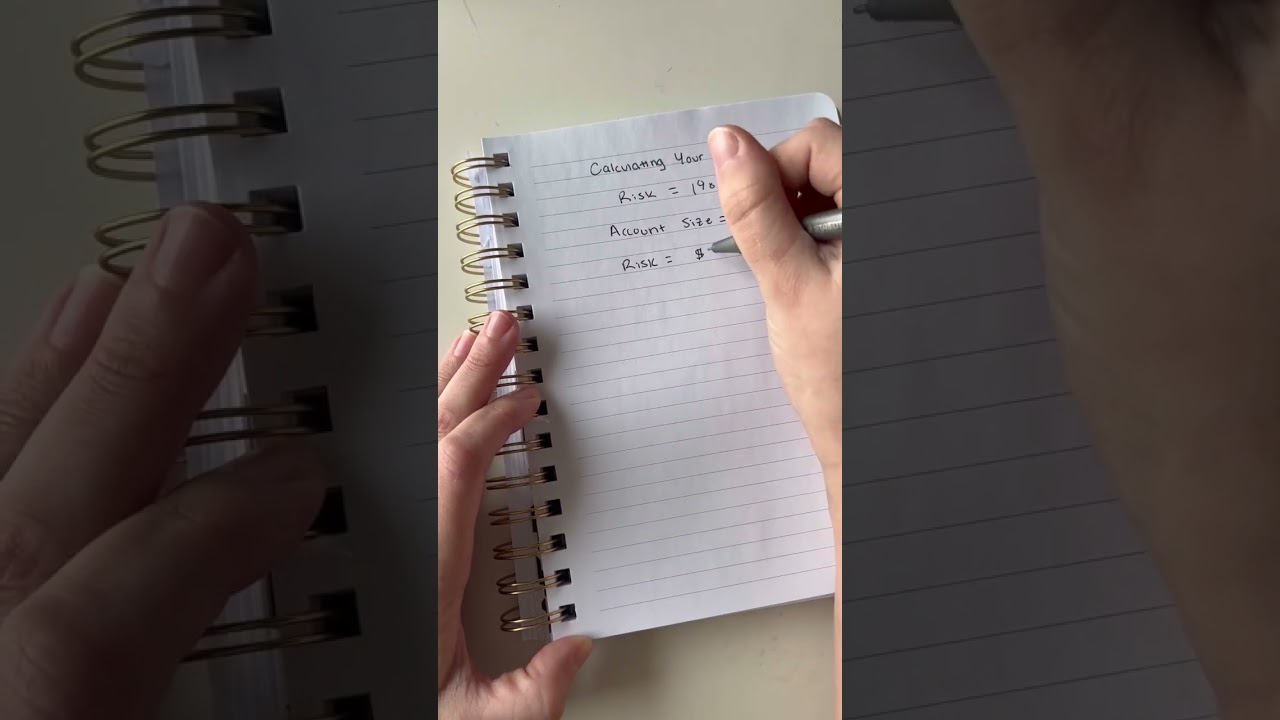 Calculating Your
Risk =
Account Size =
Risk = $